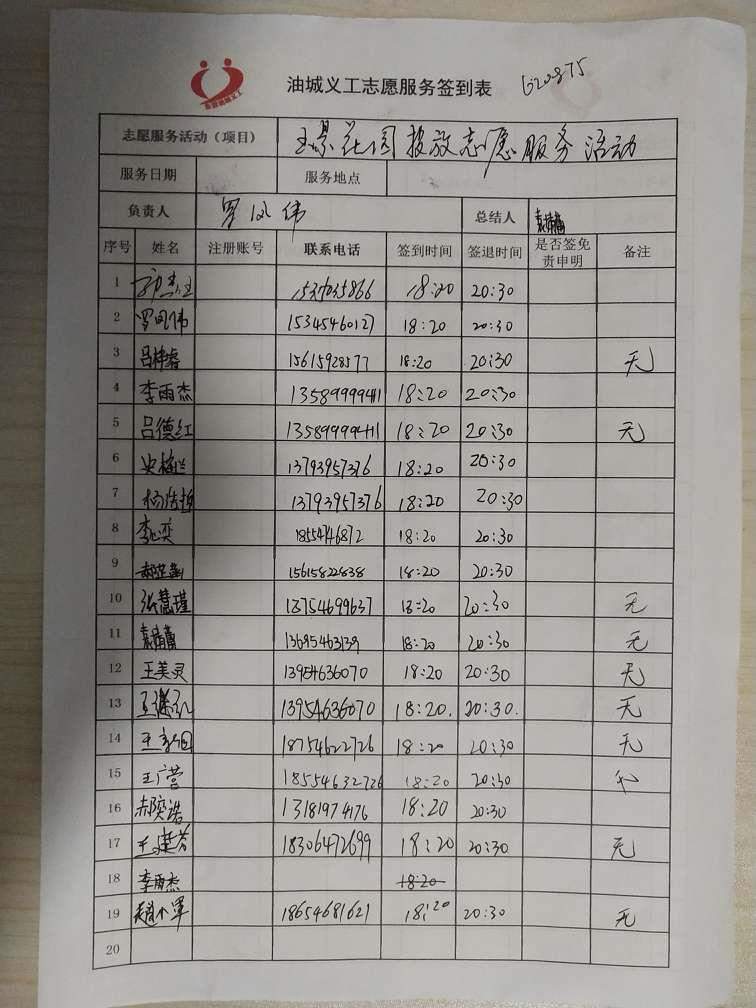 油城义工志愿服务签到表 620875
志愿服务活动（项目） 玉景花园投放志愿服务活动
服务日期 服务地点
负责人 罗凤伟 总结人
序号 姓名 注册账号 联系电话 签到时间 签退时间 是否签免责申明 备注
1 18:20 20:30
2 罗凤伟 15345460127 18:20 20:30
3 吕梓睿 15615928577 18:20 20:30 无
4 李雨杰 13589999411 18:20 20:30
5 吕德红 13589999411 18:20 20:30 无
6 13793957376 18:20 20:30
7 13793957376 18:20 20:30
8 18554746872 18:20 20:30
9 15615822838 18:20 20:30
10 张慧瑾 18754699637 18:20 20:30 无
11 13695463139 18:20 20:30 无
12 王美灵 13954636070 18:20 20:30 无
13 13954636070 18:20. 20:30. 无
14 18754622726 18:20 20:30 无
15 王广营 18554632726 18:20 20:30
16 郝奕诺 13181974176 18:20 20:30
17 王建芬 18306472699 18:20 20:30 无
18 李雨杰 18:20
19 赵小军 18654681621 18:20 20:30 无
20